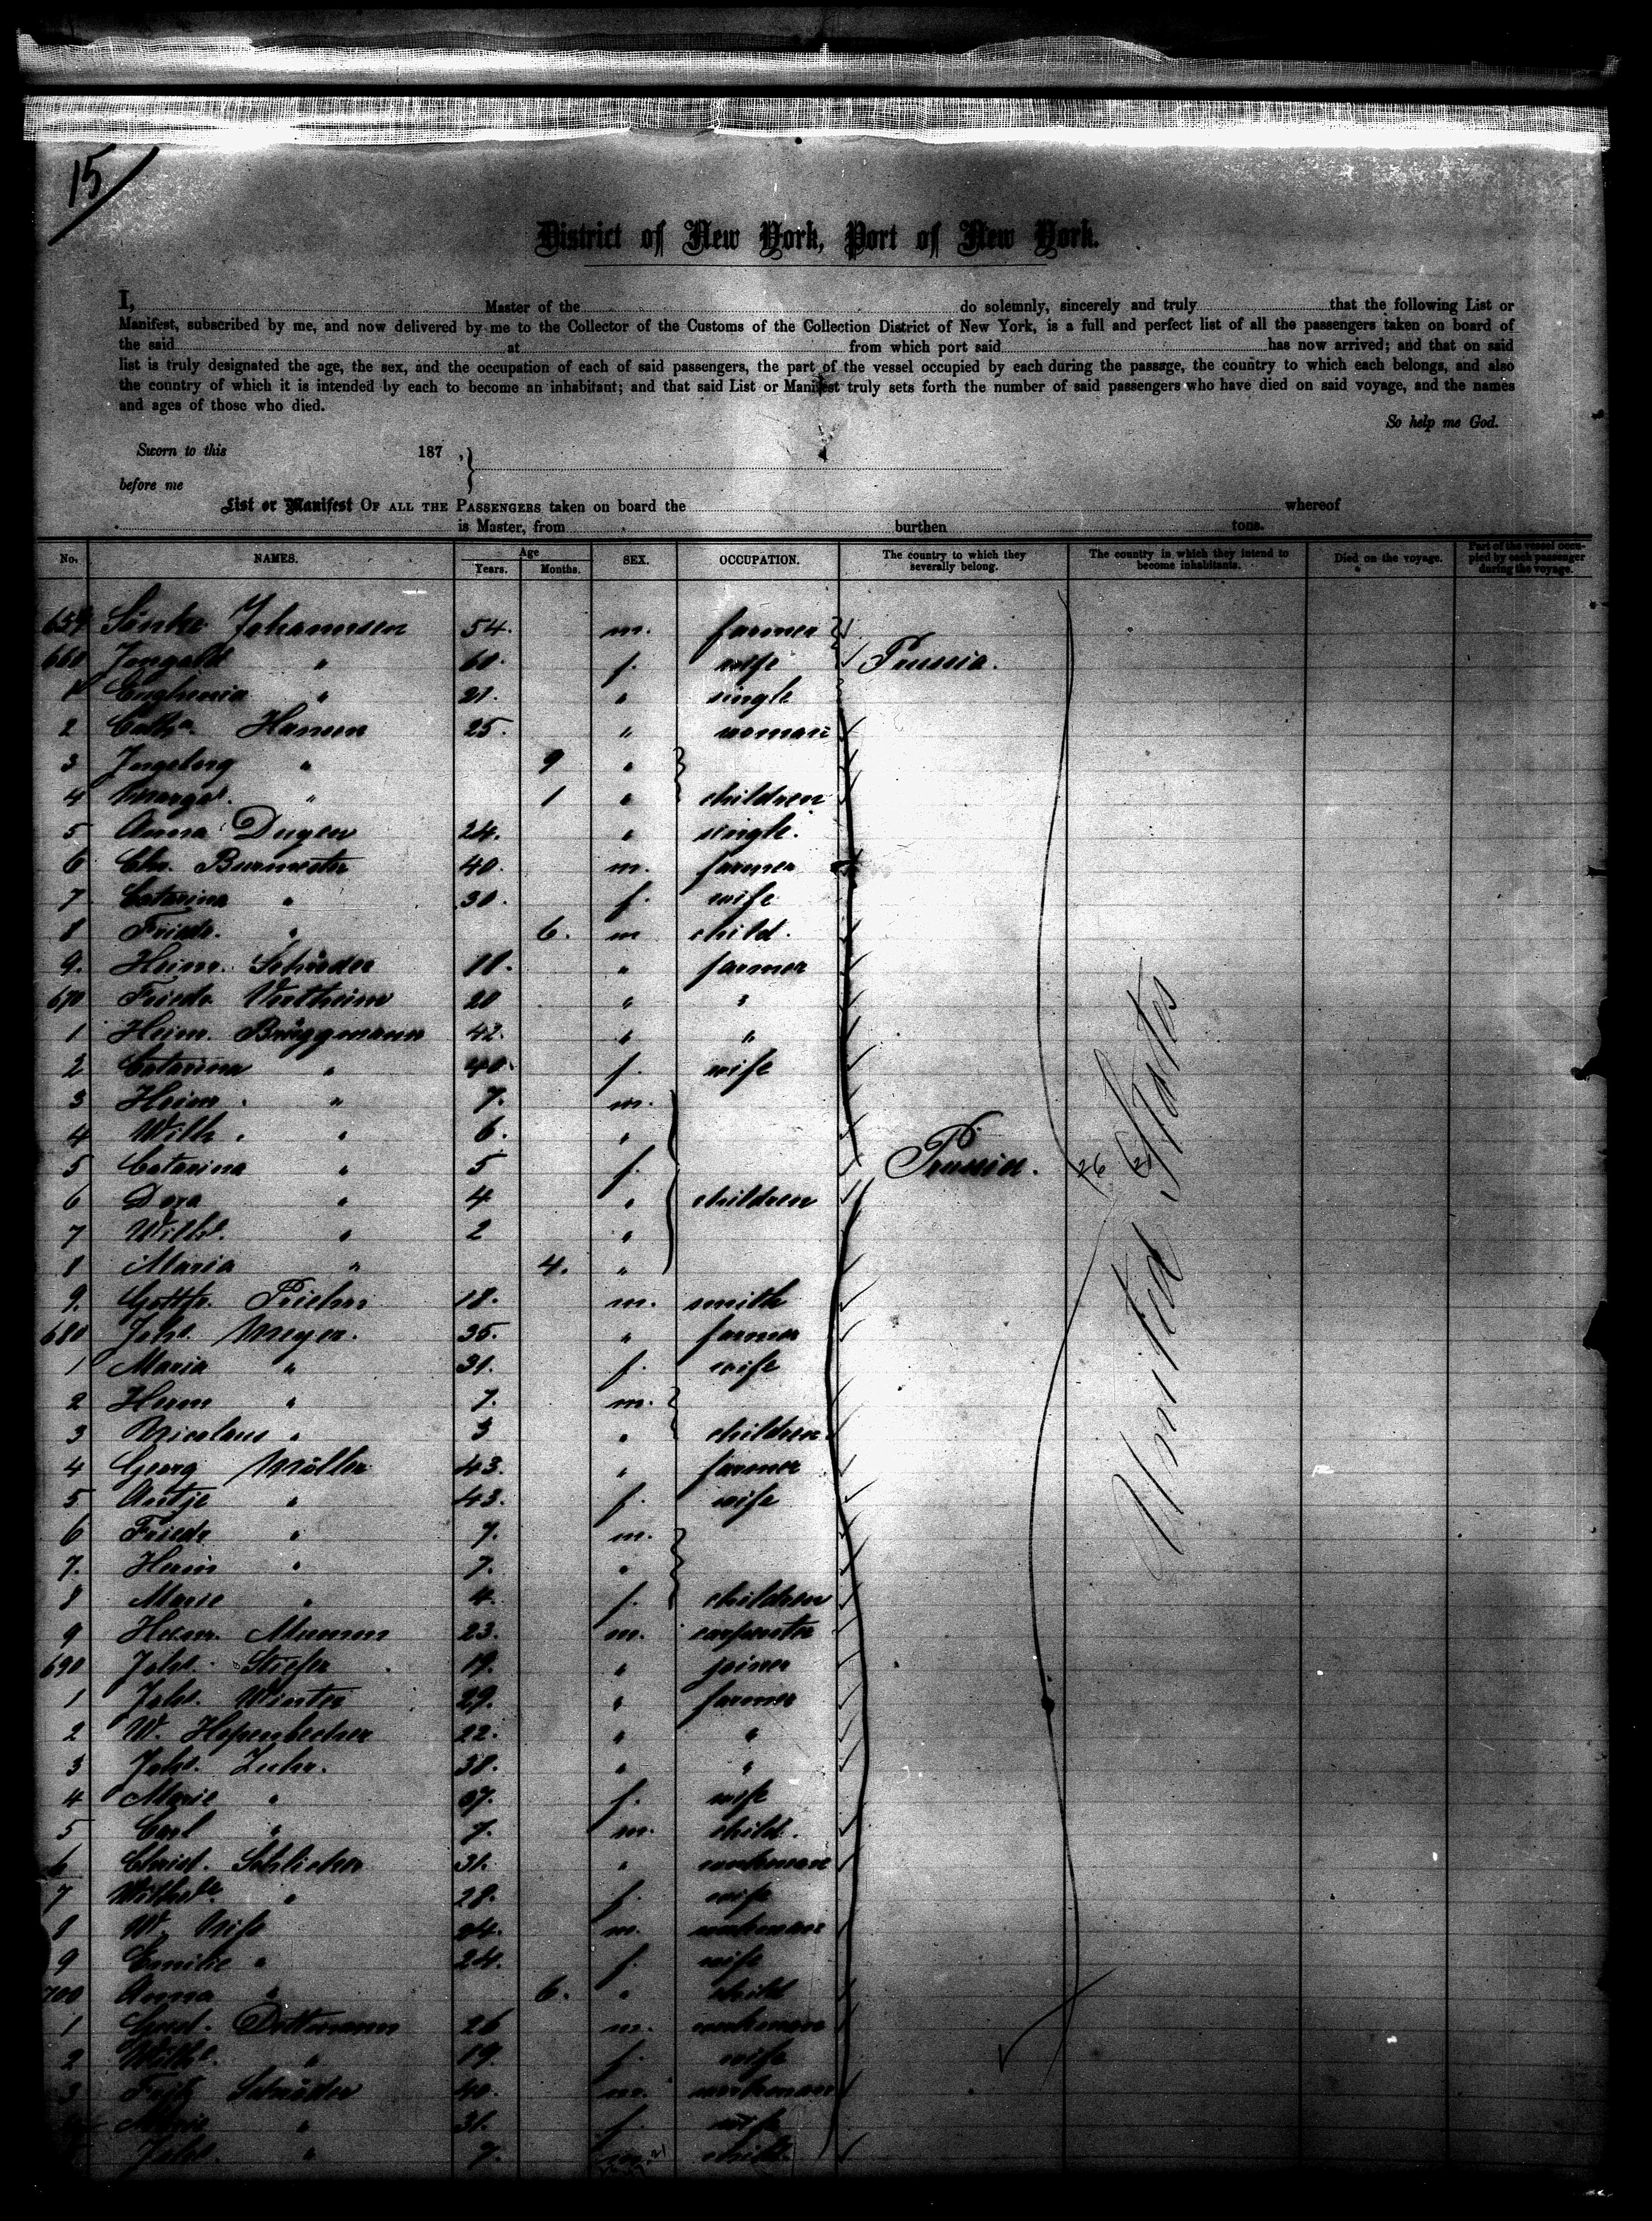 15
District of New York, Port of New York.
I, Master of the do solemnly, sincerely and truly that the following List or
Manifest, subscribed by me, and now delivered by me to the Collector of the Customs of the Collection District of New York, is a full and perfect list of all the passengers taken on board of
the said at from which port said has now arrived; and that on said
list is truly designated the age, the sex, and the occupation of each of said passengers, the part of the vessel occupied by each during the passage, the country to which each belongs, and also
the country of which it is intended by each to become an inhabitant; and that said List or Manifest truly sets forth the number of said passengers who have died on said voyage, and the names
and ages of those who died.
So help me God.
Sworn to this 187 ,}
before me
List or Manifest OF ALL THE PASSENGERS taken on board the whereof
is Master, from burthen tons.
No. NAMES. Age Years. Months. SEX. OCCUPATION. The country to which they severally belong. The country in which they intend to become inhabitants. Died on the voyage. Part of the vessel occupied by each passenger during the voyage.
659 Sönke Johannsen 54. m. farmer
660 " 60. f. wife Prussia.
1 " 21. " single
2 Cath. Hansen 25. " woman
3 Ingeborg " 9 "
4 Margar. " 1 " children
5 Anna 24. " single.
6 Chr. Burmester 40. m. farmer
7 Catarina " 30. f. wife
8 Friedr. " 6. m child.
9. Heinr. Schröder 18. " farmer
670 Friedr. 20 " "
1 Heinr. Brüggmann 42. " "
2 Catarina " 40. f. wife
3 Heinr. " 7. m.
4 Wilh. " 6. "
5 Catarina " 5 f. Prussia.
6 Dora " 4 " children
7 Wilh. " 2 "
8 Maria " 4. "
9. Gottfr. 18. m. smith
680 Joh. Meyer. 35. " farmer
1 Maria " 31. f. wife
2 Herm " 7. m.
3 Nicolaus " 3 " children
4 Georg Möller 43. " farmer
5 Antje " 43. f. wife
6 Friedr " 7. m.
7. Heinr " 7. "
8 Marie " 4. f. children
9 Heinr. Mumm 23. m. carpenter
690 Joh. 19. " joiner
1 Joh. Winter 29. " farmer
2 W. 22. " "
3 Joh. 38. " "
4 Marie " f. wife
5 Carl " 7. m. child.
6 Christ. 31. " workman
7 " 28. f. wife
8 W. 24. m. workman
9 Emilie " 24. f. wife
700 Anna " 6. " child
1 Dettmann 26 m. workman
2 " 19. f. wife
3 Fritz Schröder 40. m. workman
Marie " 31. f. wife
Joh. " 7. m. child.
United States